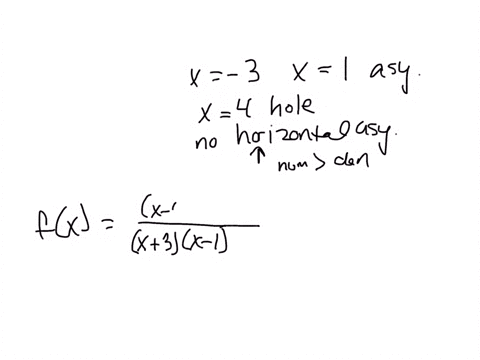 x = -3 x = 1 asy.
x = 4 hole
no horizontal asy.
↑ num > den
f(x) = (x-
(x+3)(x-1)